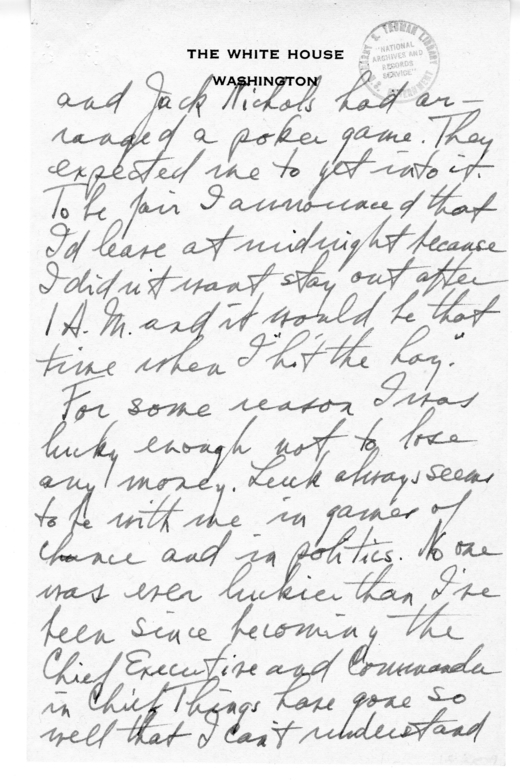 THE WHITE HOUSE
WASHINGTON
HARRY S. TRUMAN LIBRARY
"NATIONAL
ARCHIVES AND
RECORDS
SERVICE"
and Jack Nichols had ar-
ranged a poker game. They
expected me to get into it.
To be fair I announced that
I'd leave at midnight because
I didn't want stay out after
1 A.M. and it would be that
time when I "hit the hay."
For some reason I was
lucky enough not to lose
any money. Luck always seems
to be with me in games of
chance and in politics. No one
was ever luckier than I've
been since becoming the
Chief Executive and Commander
in Chief. Things have gone so
well that I can't understand